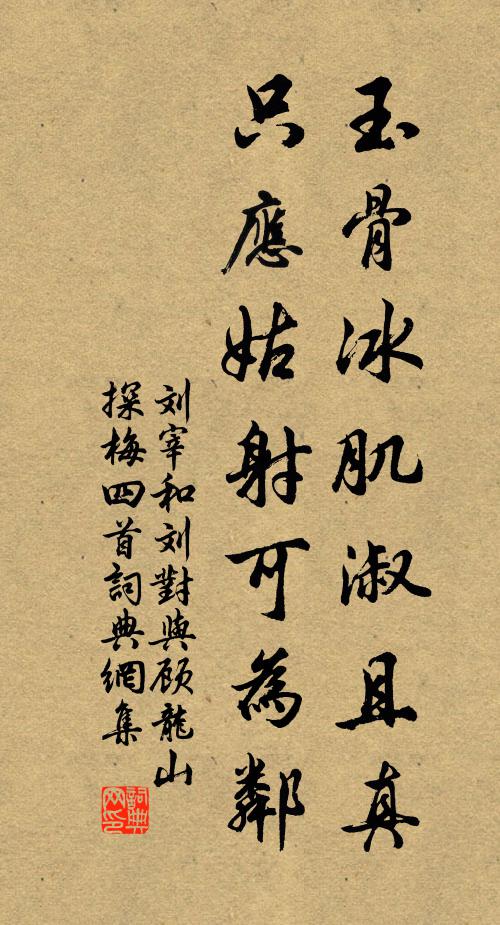 玉骨冰肌淑且真
只應姑射可為鄰
刘宰和刘對與顾龍山
探梅四首詞典網集
詞典網印